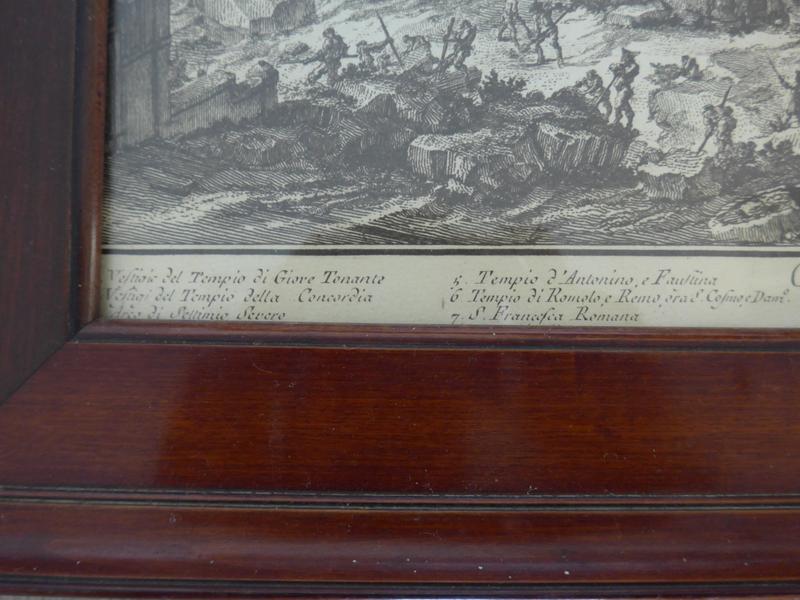 Vestigie del Tempio di Giove Tonante
Vestigi del Tempio della Concordia
Arco di Settimio Severo
5. Tempio d'Antonino, e Faustina
6. Tempio di Romolo, e Remo, ora S. Cosmo, e Dam.º
7. S. Francesca Romana